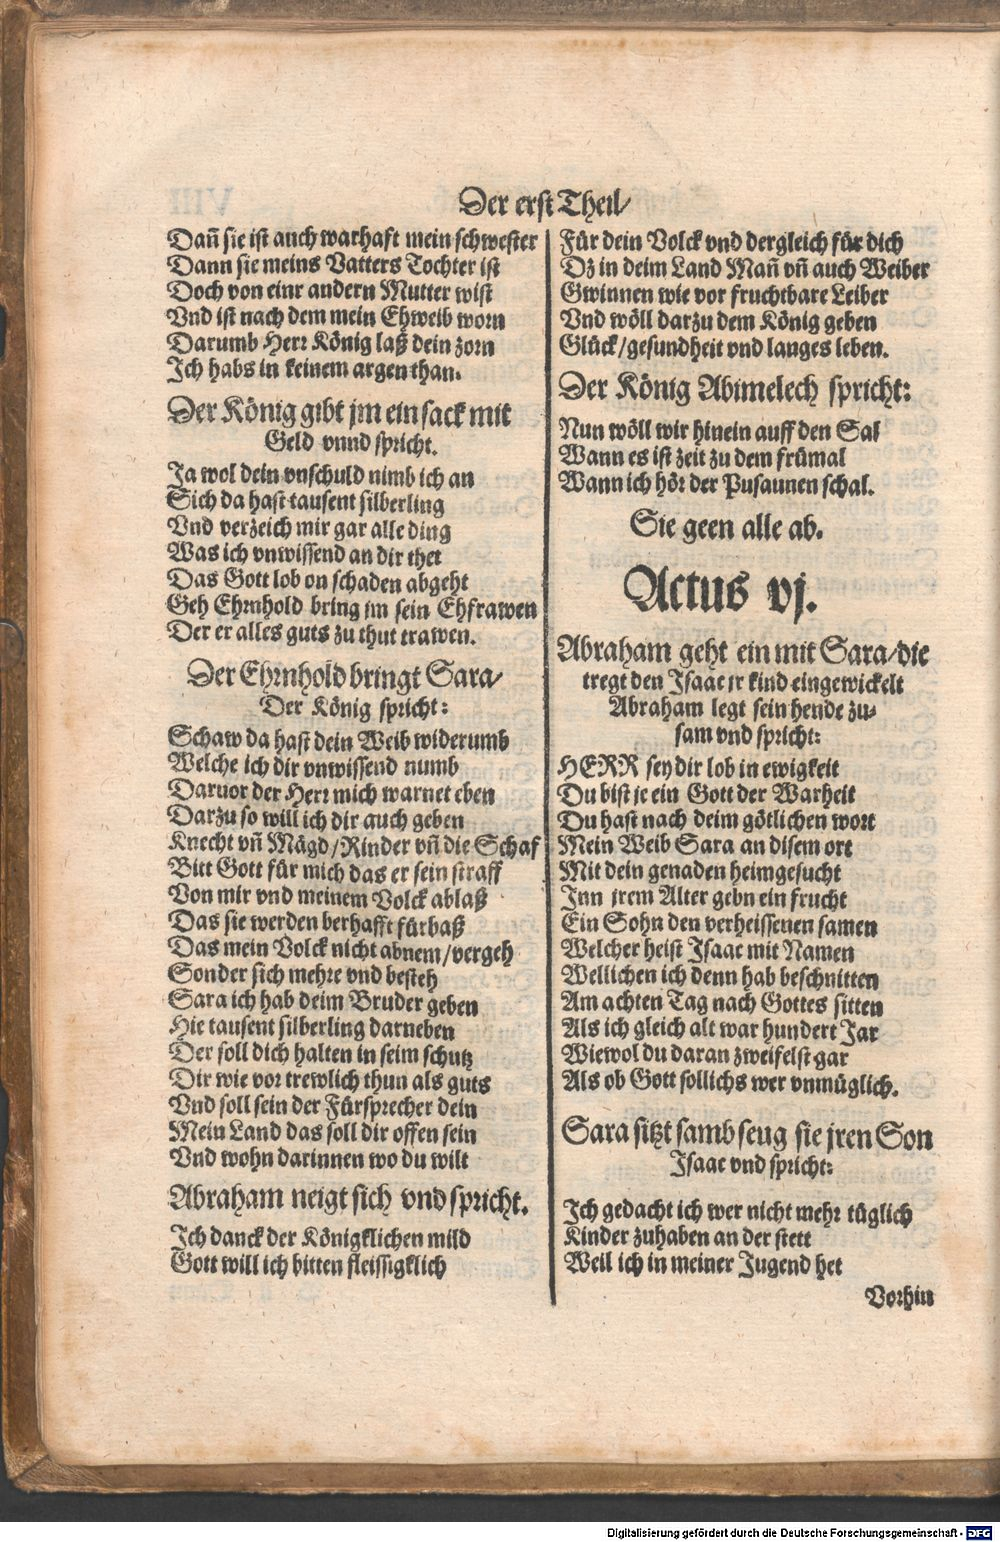 Der erst Theil/
Dañ sie ist auch warhaft mein schwester
Dann sie meins Vatters Tochter ist
Doch von einr andern Mutter wist
Vnd ist nach dem mein Ehweib worn
Darumb Herr König laß dein zorn
Ich habs in keinem argen than.
Der König gibt jm ein sack mit
Geld vnnd spricht.
Ja wol dein vnschuld nimb ich an
Sich da hast tausent silberling
Vnd verzeich mir gar alle ding
Was ich vnwissend an dir thet
Das Gott lob on schaden abgeht
Geh Ehrnhold bring jm sein Ehfrawen
Der er alles guts zu thut trawen.
Der Ehrnhold bringt Sara/
Der König spricht:
Schaw da hast dein Weib widerumb
Welche ich dir vnwissend numb
Daruor der Herr mich warnet eben
Darzu so will ich dir auch geben
Knecht vñ Mägd/Rinder vñ die Schaf
Bitt Gott für mich das er sein straff
Von mir vnd meinem Volck ablaß
Das sie werden berhafft fürbaß
Das mein Volck nicht abnem/vergeh
Sonder sich mehre vnd besteh
Sara ich hab deim Bruder geben
Hie tausent silberling darneben
Der soll dich halten in seim schutz
Dir wie vor trewlich thun als guts
Vnd soll sein der Fürsprecher dein
Mein Land das soll dir offen sein
Vnd wohn darinnen wo du wilt
Abraham neigt sich vnd spricht.
Ich danck der Königklichen mild
Gott will ich bitten fleissigklich
Für dein Volck vnd dergleich für dich
Dz in deim Land Mañ vñ auch Weiber
Gwinnen wie vor fruchtbare Leiber
Vnd wöll darzu dem König geben
Glück/gesundheit vnd langes leben.
Der König Abimelech spricht:
Nun wöll wir hinein auff den Sal
Wann es ist zeit zu dem frümal
Wann ich hör der Pusaunen schal.
Sie geen alle ab.
Actus vj.
Abraham geht ein mit Sara/die
tregt den Isaac jr kind eingewickelt
Abraham legt sein hende zu-
sam vnd spricht:
HERR sey dir lob in ewigkeit
Du bist je ein Gott der Warheit
Du hast nach deim götlichen wort
Mein Weib Sara an disem ort
Mit dein genaden heimgesucht
Inn jrem Alter gebn ein frucht
Ein Sohn den verheissenen samen
Welcher heist Isaac mit Namen
Wellichen ich denn hab beschnitten
Am achten Tag nach Gottes sitten
Als ich gleich alt war hundert Jar
Wiewol du daran zweifelst gar
Als ob Gott sollichs wer vnmüglich.
Sara sitzt samb seug sie jren Son
Isaac vnd spricht:
Ich gedacht ich wer nicht mehr tüglich
Kinder zuhaben an der stett
Weil ich in meiner Jugend het
Vorhin
Digitalisierung gefördert durch die Deutsche Forschungsgemeinschaft - DFG